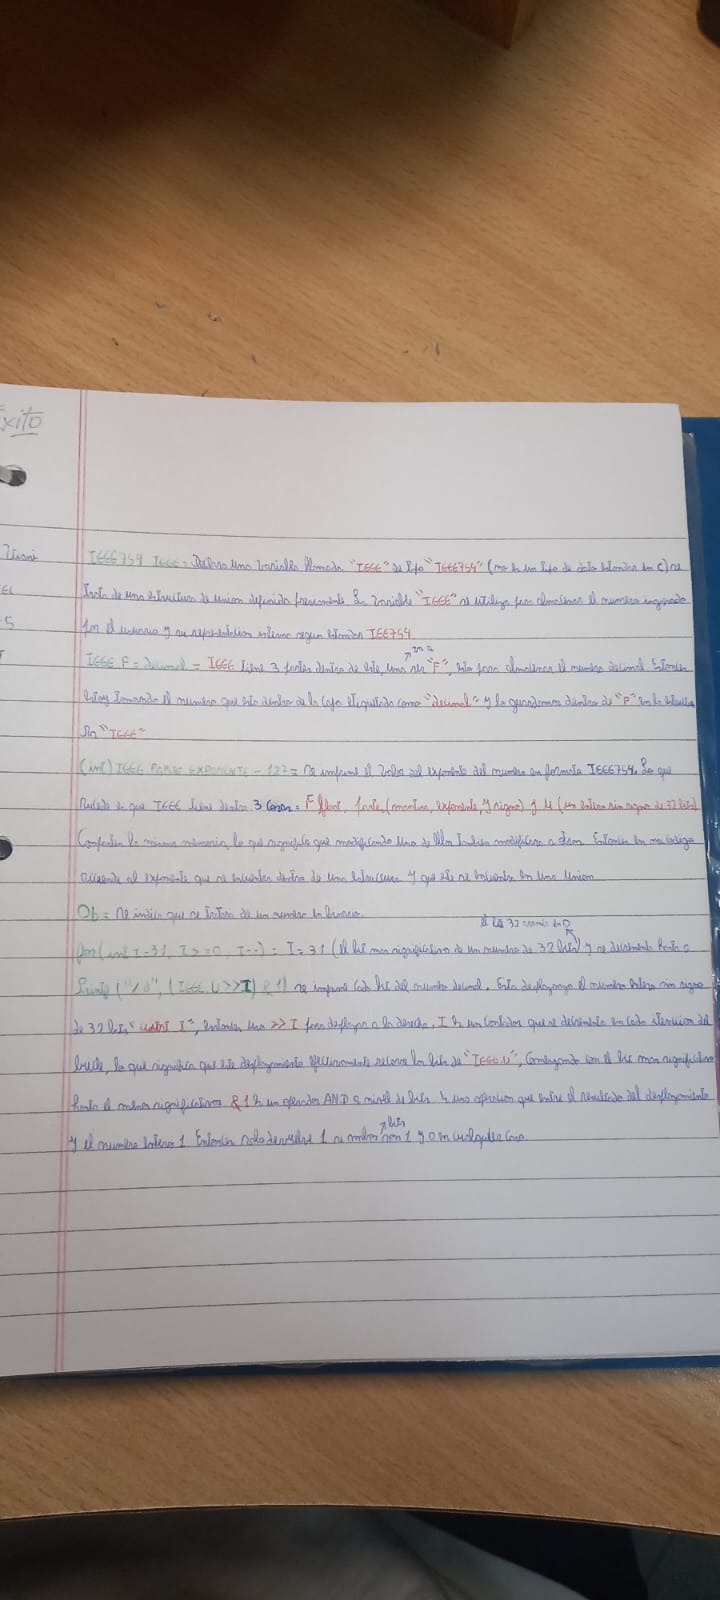 Éxito
IEEE754 IEEE = Declara una variable llamada "IEEE" de tipo "IEEE754" (no es un tipo de dato estandar en c) se
trata de una estructura de union definida previamente. La variable "IEEE" se utiliza para almacenar el numero ingresado
por el usuario y su representacion interna segun estandar IEE754.
IEEE F = decimal = IEEE tiene 3 partes dentro de este, una "F", esta para almacenar el numero decimal. Entonces
estoy tomando el numero que esta dentro de la caja etiquetada como "decimal" y la guardamos dentro de "F" en la
"IEEE"
(int) IEEE PARTE EXPONENTE - 127 = se imprime el valor del exponente del numero en formato IEEE754. Lo que
sucede es que IEEE tiene dentro 3 cosas = F float, parte (mantisa, exponente, y signo) y U (un entero sin signo de 32 bits)
Comparten la misma memoria, lo que significa que modificando una de ellas tambien modificara a otra. Entonces en mi codigo
al exponente que se encuentra dentro de una estructura y que este se encuentra en una union.
0b = se indica que se trata de un numero en binario.
32
for (int I=31, I>=0, I--) = I=31 (el bit mas significativo de un numero de 32 bits) y se decrementa hasta 0
Printf ("%d", (IEEE.U >> I) & 1) se imprime cada bit del numero decimal. Esta desplazando el numero entero sin signo
de 32 bits, entonces usa >> I para desplazar a la derecha, I es un contador que se decrementa en cada iteracion del
bucle, lo que significa que este desplazamiento efectivamente recorre los bits de "IEEE.U", comenzando con el bit mas significativo
hasta el menos significativo. & 1 es un operador AND a nivel de bits. Es una operacion que entre el resultado del desplazamiento
bits
y el numero entero 1. Entonces solo devuelve 1 si ambos son 1 y 0 en cualquier caso.